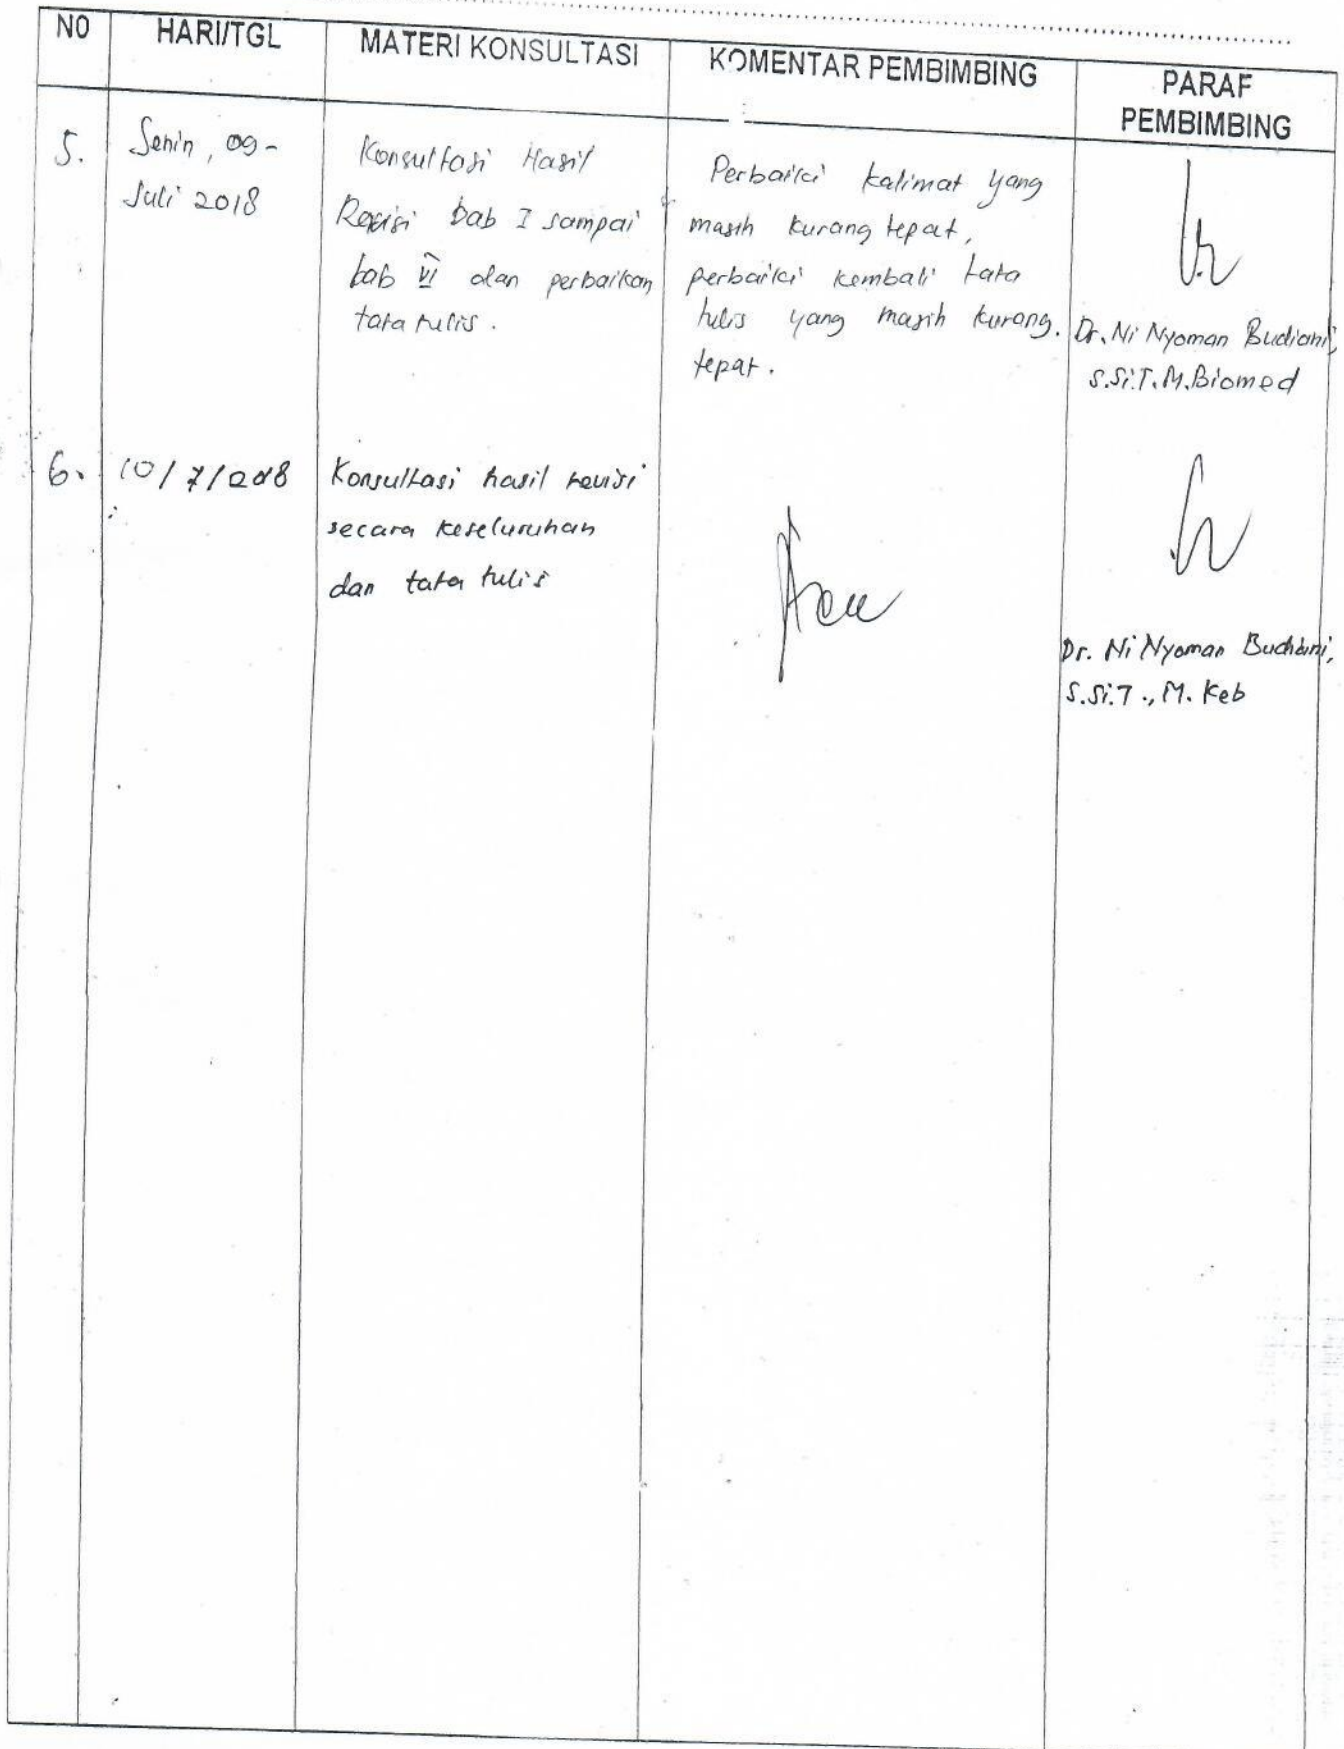 NO
HARI/TGL
MATERI KONSULTASI
KOMENTAR PEMBIMBING
PARAF
PEMBIMBING
5.
Senin, 09-
Juli 2018
Konsultasi Hasil
Revisi bab I sampai
bab VI dan perbaikan
tata tulis.
Perbaiki kalimat yang
masih kurang tepat,
perbaiki kembali tata
tulis yang masih kurang
tepat.
Dr. Ni Nyoman Budiani,
S.Si.T.M.Biomed
6.
10/7/2018
Konsultasi hasil revisi
secara keseluruhan
dan tata tulis
Dr. Ni Nyoman Budiani,
S.Si.T., M. Keb